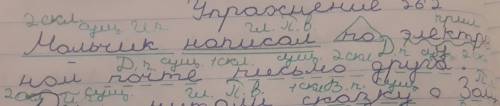 Упражнение 262
2 скл. сущ. И.п. гл. П.в. прил.
Мальчик написал по электр
Д.п. сущ. 1скл. сущ. 2скл Д.п. сущ. 2
ной почте письмо друга.
сущ. гл. П.в. 1скл В.п. сущ.
читали сказку о Зол